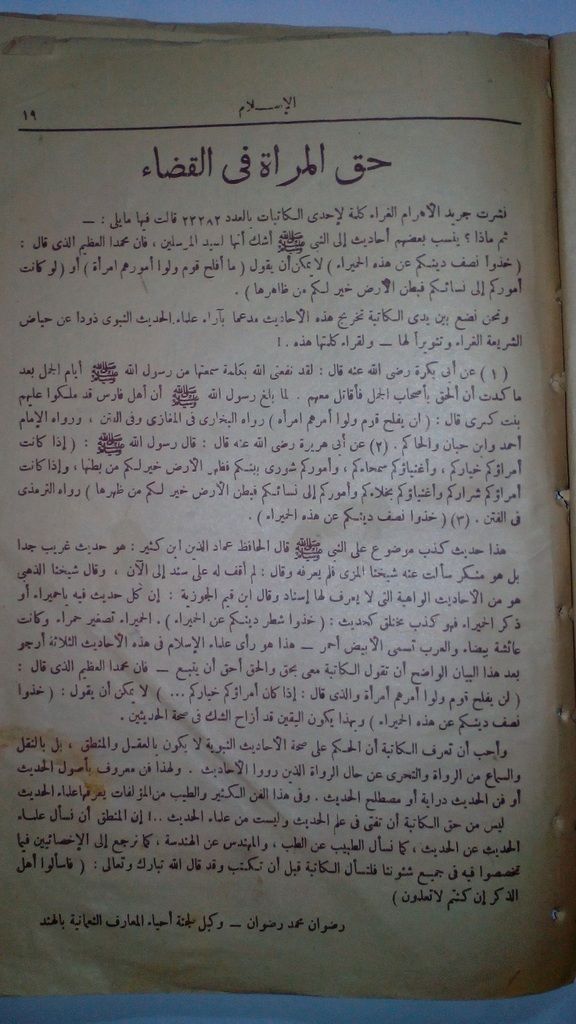 ١٩
الإسلام
حق المرأة فى القضاء
نشرت جريد الأهرام الغراء كلمة لإحدى الكاتبات بالعدد ٢٣٢٨٢ قالت فيها مايلى : —
ثم ماذا ؟ ينسب بعضهم أحاديث إلى النبى ﷺ أشك أنها لسيد المرسلين ، فان محمدا العظيم الذى قال :
( خذوا نصف دينكم عن هذه الحميراء ) لا يمكن أن يقول ( ما أفلح قوم ولوا أمورهم امرأة ) أو ( لو كانت
أموركم إلى نسائكم فبطن الأرض خير لكم من ظاهرها ) .
ونحن نضع بين يدى الكاتبة تخريج هذه الأحاديث مدعما بآراء علماء الحديث النبوى ذودا عن حياض
الشريعة الغراء وتنويراً لها — ولقراء كلمتها هذه . !
( ١ ) عن أبى بكرة رضى الله عنه قال : لقد نفعنى الله بكلمة سمعتها من رسول الله ﷺ أيام الجمل بعد
ما كدت أن ألحق بأصحاب الجمل فأقاتل معهم . لما بلغ رسول الله ﷺ أن أهل فارس قد ملكوا عليهم
بنت كسرى قال : ( لن يفلح قوم ولوا أمرهم امرأة ) رواه البخارى فى المغازى وفى الفتن ، ورواه الإمام
أحمد وابن حبان والحاكم . (٢) عن أبى هريرة رضى الله عنه قال : قال رسول الله ﷺ : ( إذا كانت
أمراؤكم خياركم ، وأغنياؤكم سمحاءكم ، وأموركم شورى بينكم فظهر الأرض خير لكم من بطنها ، وإذا كانت
أمراؤكم شراركم وأغنياؤكم بخلاءكم وأموركم إلى نسائكم فبطن الأرض خير لكم من ظهرها ) رواه الترمذى
فى الفتن . (٣) ( خذوا نصف دينكم عن هذه الحميراء ) .
هذا حديث كذب موضوع على النبى ﷺ قال الحافظ عماد الدين ابن كثير : هو حديث غريب جدا
بل هو منكر سألت عنه شيخنا المزى فلم يعرفه وقال : لم أقف له على سند إلى الآن ، وقال شيخنا الذهبى
هو من الأحاديث الواهية التى لا يعرف لها إسناد وقال ابن قيم الجوزية : إن كل حديث فيه ياحميراء أو
ذكر الحميراء فهو كذب مختلق كحديث : ( خذوا شطر دينكم عن الحميراء ) . الحميراء تصغير حمراء وكانت
عائشة بيضاء والعرب تسمى الأبيض أحمر — هذا هو رأى علماء الإسلام فى هذه الأحاديث الثلاثة أرجو
بعد هذا البيان الواضح أن تقول الكاتبة معى بحق والحق أحق أن يتبع — فان محمدا العظيم الذى قال :
( لن يفلح قوم ولوا أمرهم امرأة والذى قال : إذا كان أمراؤكم خياركم ... ) لا يمكن أن يقول : ( خذوا
نصف دينكم عن هذه الحميراء ) وبهذا يكون اليقين قد أزاح الشك فى صحة الحديثين .
وأحب أن تعرف الكاتبة أن الحكم على صحة الأحاديث النبوية لا يكون بالعقل والمنطق ، بل بالنقل
والسماع من الرواة والتحرى عن حال الرواة الذين رووا الأحاديث . ولهذا فن معروف بأصول الحديث
أو فن الحديث دراية أو مصطلح الحديث . وفى هذا الفن الكثير والطيب من المؤلفات يعرفها علماء الحديث
ليس من حق الكاتبة أن تفتى فى علم الحديث وليست من علماء الحديث ..! إن المنطق أن نسأل علماء
الحديث عن الحديث ، كما نسأل الطبيب عن الطب ، والمهندس عن الهندسة ، كما نرجع إلى الإخصائيين فيما
تخصصوا فيه فى جميع شئوننا فلتسأل الكاتبة قبل أن تكتب وقد قال الله تبارك وتعالى : ( فاسألوا أهل
الذكر إن كنتم لا تعلمون )
رضوان محمد رضوان — وكيل لجنة أحياء المعارف النعمانية بالهند